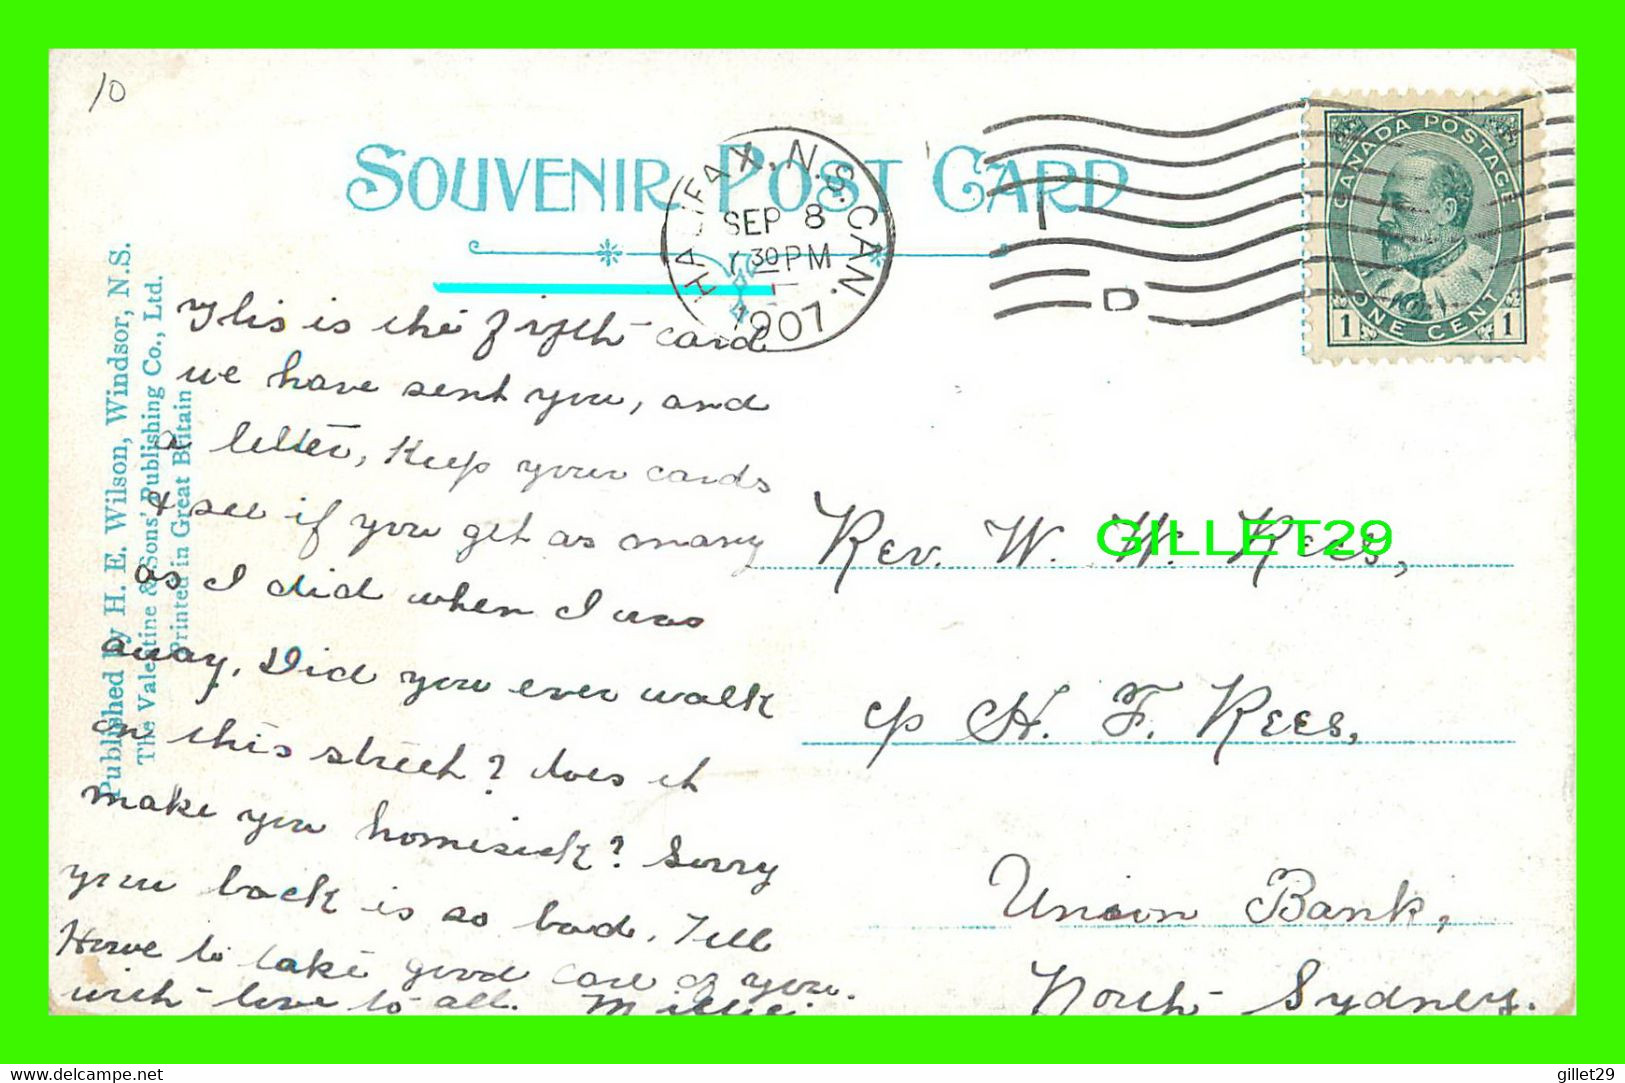 10
SOUVENIR POST CARD
HALIFAX, N.S. CAN.
SEP 8
7 30 PM
1907
D
CANADA POSTAGE
ONE CENT
1 1
Published by H. E. Wilson, Windsor, N.S.
The Valentine & Sons' Publishing Co., Ltd.
Printed in Great Britain
This is the fifth card
we have sent you, and
a letter, Keep your cards
& see if you get as many
as I did when I was
away. Did you ever walk
on this street? does it
make you homesick? Sorry
your back is so bad. Tell
Howe to take good care of you.
with love to all. Millie
Rev. W. W. Rees,
c/o H. F. Rees,
Union Bank,
North Sydney.
GILLET29
http://www.delcampe.net
gillet29